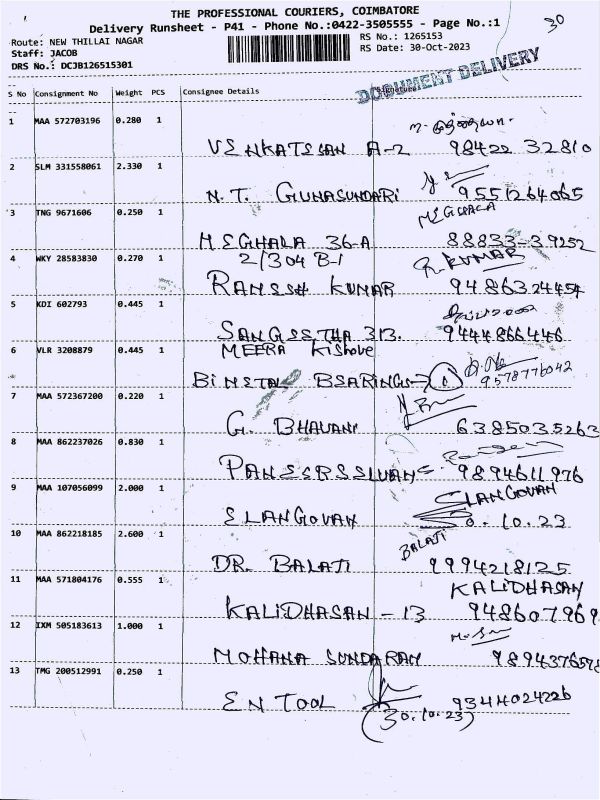 THE PROFESSIONAL COURIERS, COIMBATORE
30
Delivery Runsheet - P41 - Phone No.:0422-3505555 - Page No.:1
Route: NEW THILLAI NAGAR
RS No.: 1265153
Staff: JACOB
RS Date: 30-Oct-2023
DRS No.: DCJB126515301
DOCUMENT DELIVERY
S No Consignment No Weight PCS Consignee Details Signature
1 MAA 572703196 0.280 1
VENKATESAN A-2 98422 32810
2 SLM 331558061 2.330 1
N.T. GUNASUNDARI 9551264065
3 TNG 9671606 0.250 1
MEGHALA
MEGHALA 36-A 88833-39252
4 WKY 28583830 0.270 1
2/304 B-1 R. KUMAR
RAMESH KUMAR 9486324454
5 KDI 602793 0.445 1
SANGEETHA 313. 9444866446
6 VLR 3208879 0.445 1
MEERA Kishore
BIMETAL BEARINGS 9578776042
7 MAA 572367200 0.220 1
G. BHAVANI 6385035263
8 MAA 862237026 0.830 1
PANEERSELVAM 9894611976
9 MAA 107056099 2.000 1
ELANGOVAN
ELANGOVAN 30.10.23
10 MAA 862218185 2.600 1
BALAJI
DR. BALAJI 9994218125
11 MAA 571804176 0.555 1
KALIDHASAN
KALIDHASAN - 13 948607969
12 IXM 505183613 1.000 1
MOHANA SUNDARAM 9894376578
13 TMG 200512991 0.250 1
EN TOOL 9344024226
(30.10.23)